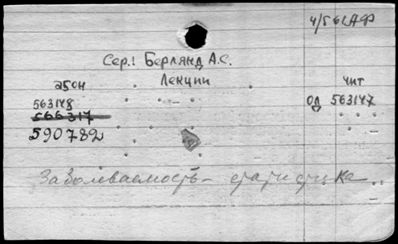 4/561АФ
Сер.! Берлянд А.С.
Лекции
абон
чит
563148
од 563147
566317
590782
Заболеваемость – статистике